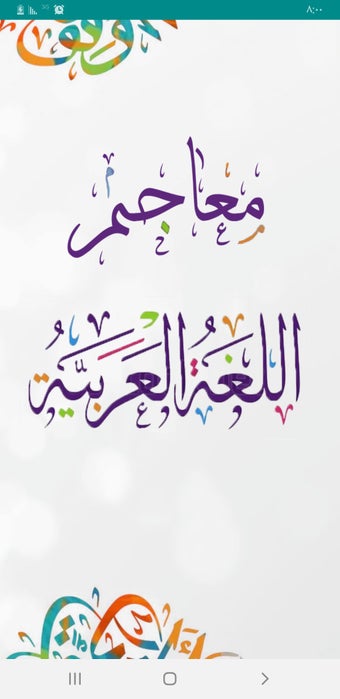 3G ٨:٠٠
معاجم
اللُّغَةُ العَرَبِيَّةُ